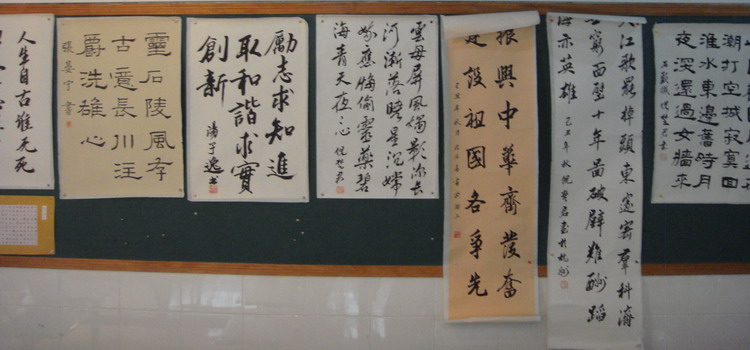 人生自古誰无死
靈石陵風存
古意長川注
爵洗雄心
張晏
勵志求知進
取和諧求實
創新
雲母屏風燭影深長
河漸落曉星沉嫦
娥應悔偷靈藥碧
海青天夜〻心
振興中華齊發奮
建設祖國各爭先
大江歌罷掉頭東邃密羣科濟
世窮面壁十年圖破壁難酬蹈
海亦英雄 己丑年秋倪楚君書於杭州
潮打空城寂寞回
淮水東邊舊時月
夜深還過女牆來
石頭城